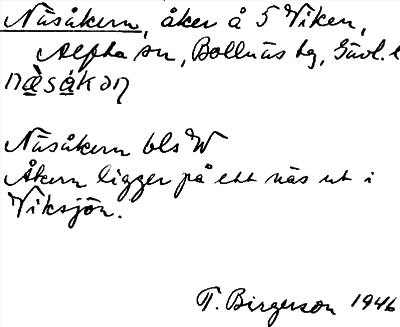 Näsåkern, åker å 5 Viken,
Alfta sn, Bollnäs tg, Gävl. l
Näsåkern bls W
Åkern ligger på ett näs ut i
Viksjön.
T. Birgerson 1946